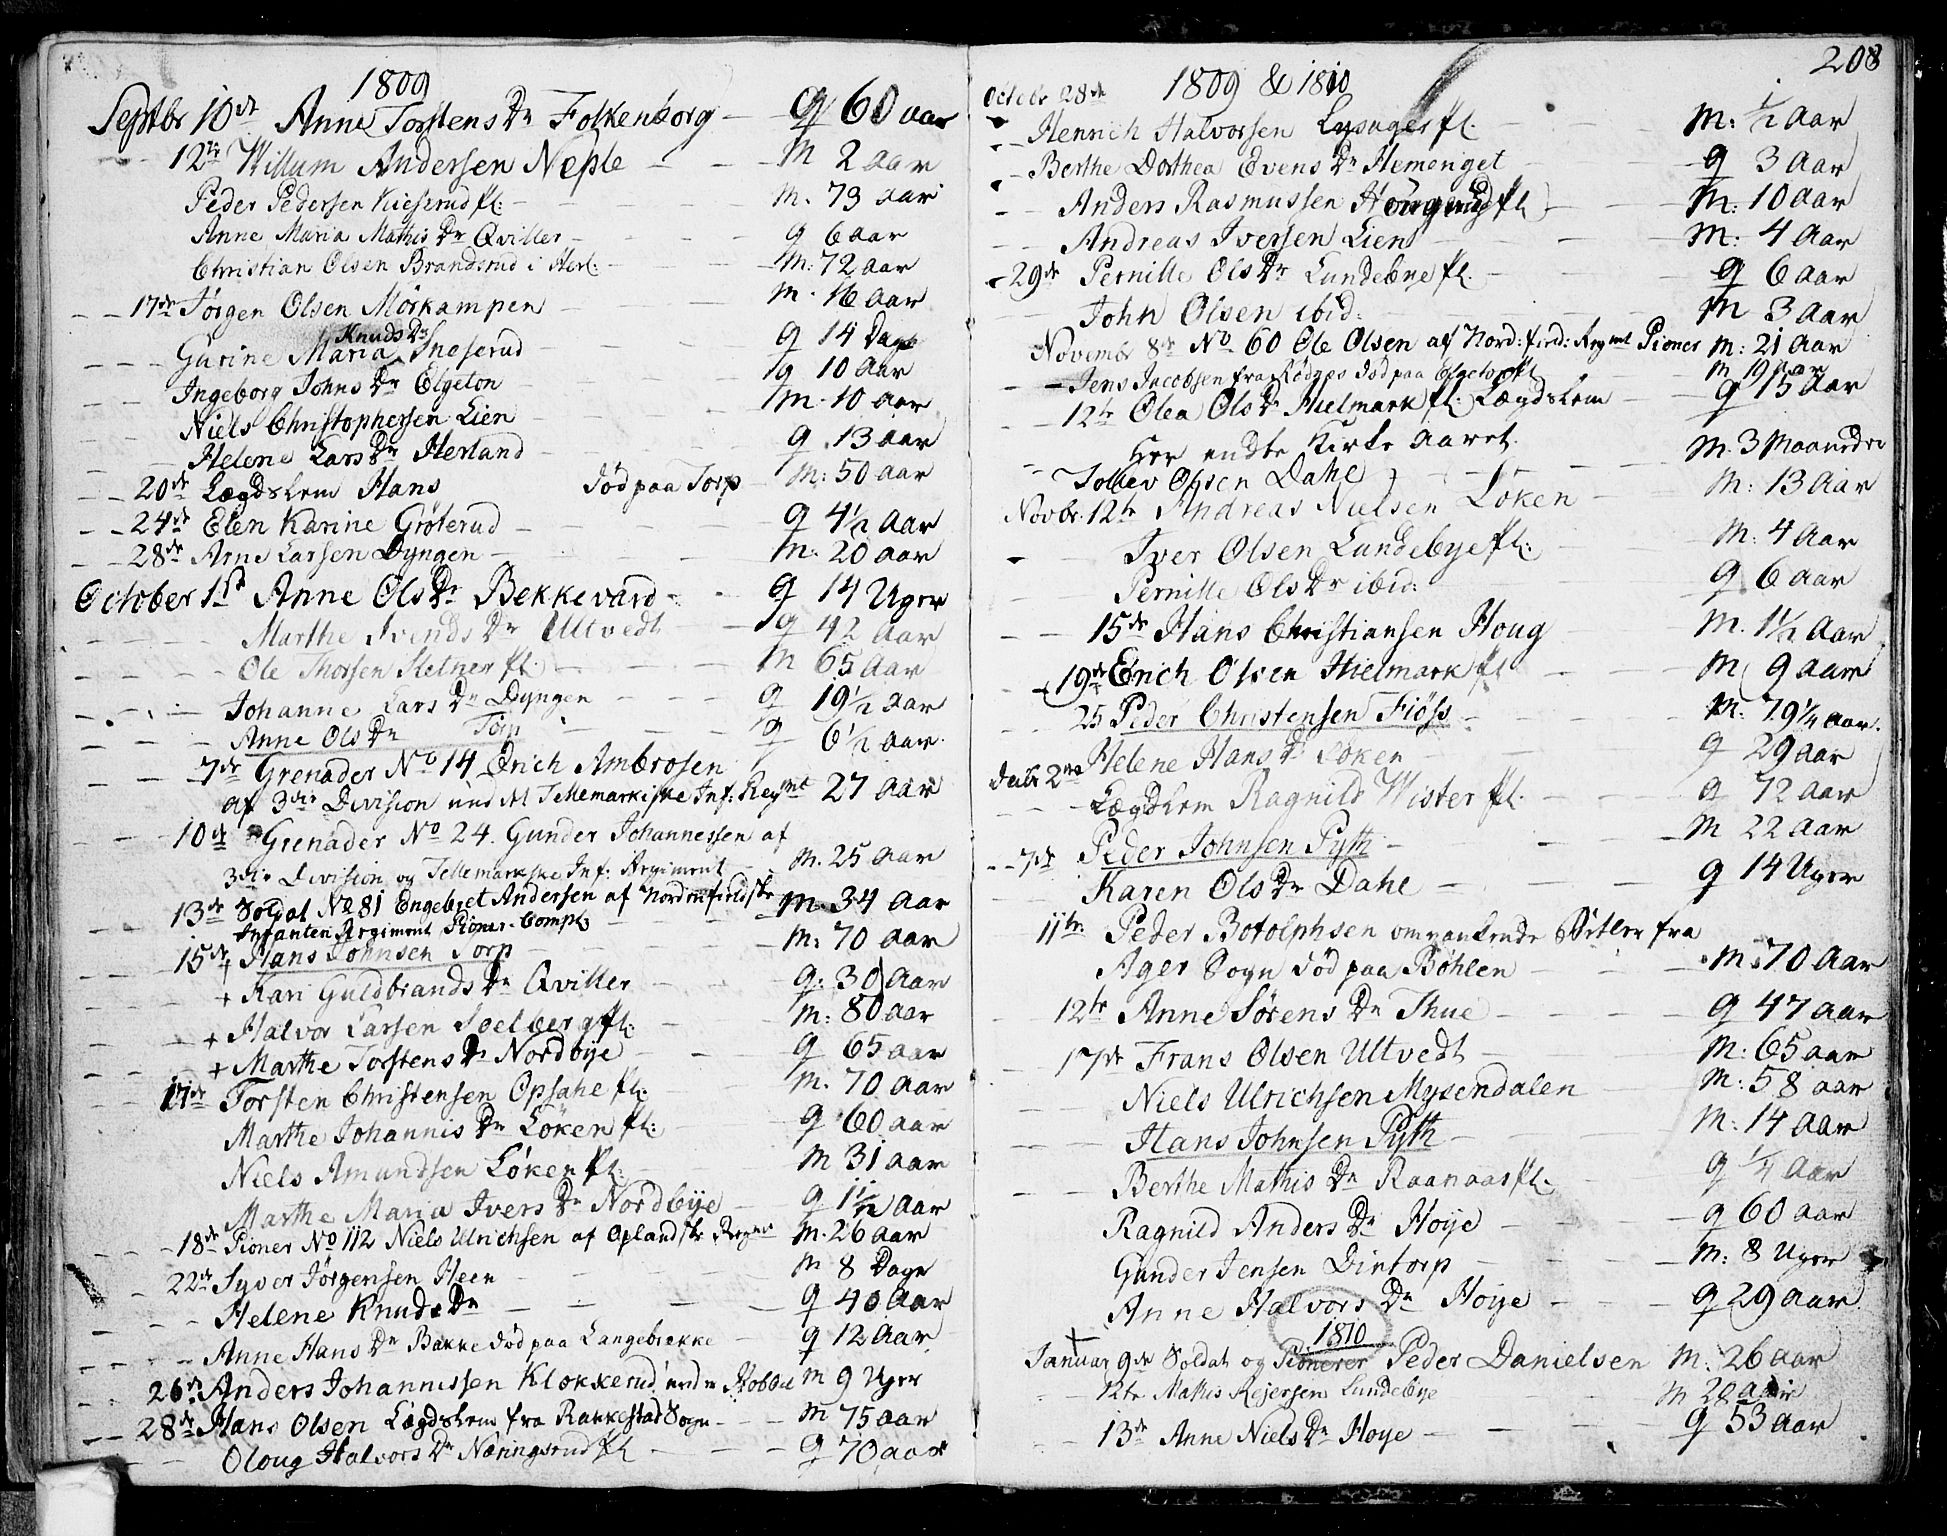 1809
Septbr 10de Anne Torstens Dr Folkenborg q 60 aar
12te Willum Andersen Neple M 2 aar
Peder Pedersen Kieserud pl: M. 73 aar
Anne Maria Mathis Dr Qviller q 6 aar
Christian Olsen Brandsrud i Herl: M: 72 aar
17de Jørgen Olsen Mörkampen M. 16 aar
Knuds Dr
Gurine Maria Sneserud q 14 Dage
Ingeborg Johns Dr Elgeton q 10 Aar
Niels Christophersen Lien M. 10 aar
Helene Lars Dr Herland q 13 aar
20de Lægdslem Hans død paa Torp M: 50 aar
24de Elen Karine Grøterud q 4 1/2 Aar
28de Arne Larsen Dyngen M. 20 aar
October 1ste Anne Ols Dr Bekkevard q 14 Uger
Marthe Svends Dr Ultvedt q 42 Aar
Ole Thorsen Sletner pl. M 65 Aar
Johanne Lars Dr Dyngen q 19 1/2 aar
Anne Ols Dr Torp q 6 1/2 aar.
7de Grenader No 14 Erich Ambrosen
af 3die Division und M Tellemarkiske Inf: Regmt 27 Aar
10de Grenader No 24. Gunder Johannessen af
3die Division og Tellemarkske Inf: Regiment M. 25 Aar
13de Soldat No 81 Engebret Andersen af Nordenfieldske M. 34 Aar
Infanteri Regiment Pioner-Compl:
15de + Hans Johnsen Torp M: 70 aar
+ Kari Guldbrands Dr Qviller q: 30 Aar
+ Halvor Larsen Soelberg pl: M: 80 aar
+ Marthe Torstens Dr Nordbye q 65 aar
17de Torsten Christensen Opsahe pl: M. 70 Aar
Marthe Johannis Dr Løken pl: q 60 aar
Niels Amundsen Løken pl: M 31 aar
Marthe Maria Ivers Dr Nordbye q 1 1/2 Aar
18de Pioner No 112 Niels Ulrichsen af Oplandske Regmt M. 26 aar
22de Syver Jørgensen Heen M 8 Dage
Helene Knuds Dr q 40 Aar
Anne Hans Dr Bakke død paa Langebrekke q 12 Aar
26de Anders Johannessen Klokkerud under Kobbel M 9 Uger
28de Hans Olsen Lægdslem fra Rakkestad Sogn M 75 aar
Oloug Halvors Dr Næringsrud pl q 70 aar
208
1809 & 1810
Octobr 28de
Henrich Halvorsen Lysager pl. M: 1/2 Aar
Berthe Dorthea Evens Dr Hemenget q 3 Aar
Anders Rasmussen pl M: 10 aar
Andreas Iversen Lien M: 4 Aar
29de Pernille Ols Dr Lundebye pl. q 6 aar
John Olsen ibid: M 3 Aar
Novembr 8de No 60 Ole Olsen af Nord: field: Regmt Pioner M: 21 Aar
Jens Jacobsen fra Rödnes död paa M 19 Aar
12te Olea Ols Dr Hielmark pl. Lægdslem q 15 Aar
Her endte Kirke Aaret.
Tollev Olsen Dahl M. 3 Maaneder
Novbr. 12te Andreas Nielsen Løken M: 13 Aar
Iver Olsen Lundebye pl: M: 4 Aar
Pernille Ols Dr ibid: q 6 aar
15de Hans Christiansen Houg M. 1 1/2 Aar
19de Erich Olsen Hielmark pl M 9 aar
25 Peder Christensen Fiøss M: 79 1/4 aar.
Helene Hans Dr Løken q 29 aar
Decbr 2den
Lægdslem Ragnild Wister pl. q 72 aar
7de Peder Johnsen Pyth M 22 Aar
Karen Ols Dr Dahl q 14 Uger
11te Peder Botolphsen omvankende Betler fra
Ager Sogn død paa Böhlen M. 70 Aar
12te Anne Sörens Dr Thue q 47 aar
17de Frans Olsen Ultvedt M: 65 aar
Niels Ulrichsen Mysendalen M: 58 aar
Hans Johnsen Pyth M: 14 Aar
Berthe Mathis Dr Raanaas pl. q 1/4 Aar
Ragnild Anders Dr Høye q 60 aar
Gunder Jensen Dintorp M: 8 Uger
Anne Halvors Dr Høye q 29 aar
1810
Januar 9de Soldat og Pionerer Peder Danielsen M. 26 aar
12te Mathis Rejersen Lundebye M 20 aar
13de Anne Niels Dr Høye q 53 aar